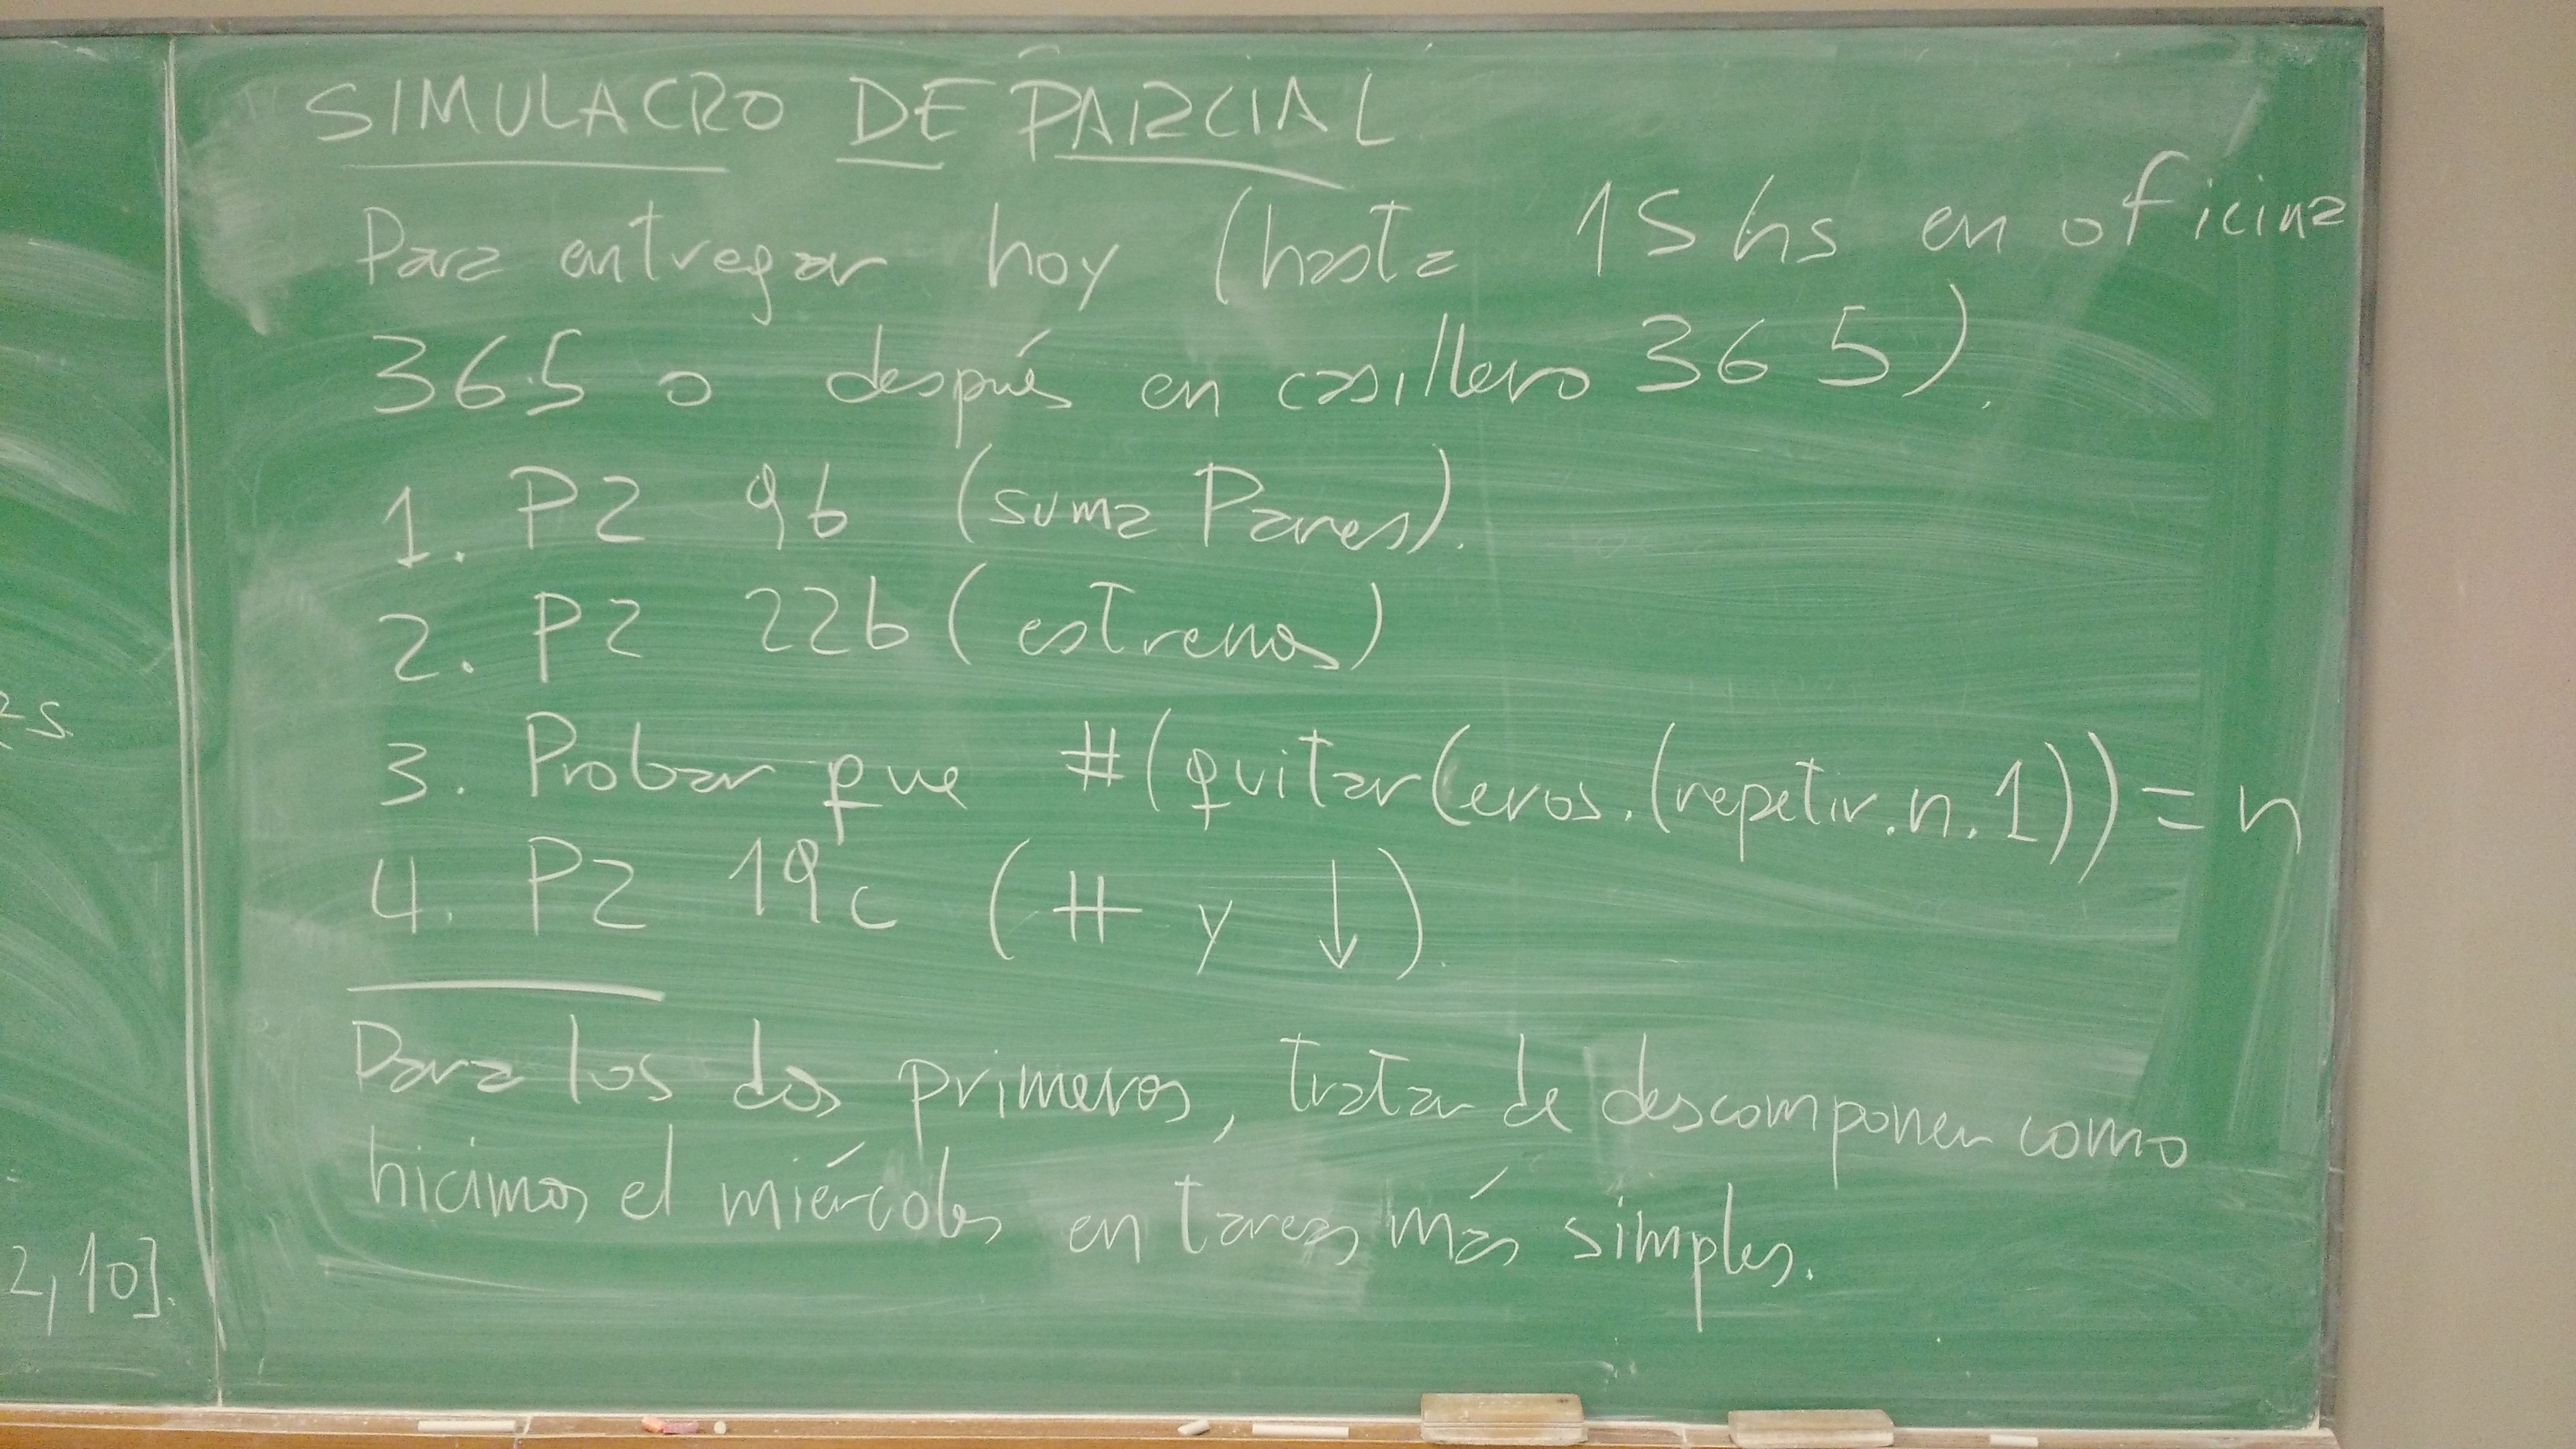 SIMULACRO DE PARCIAL
Para entregar hoy (hasta 15 hs en oficina
365 o después en casillero 365).
1. P2 9b (suma Pares).
2. P2 22b (estrenos)
3. Probar que #(quitarCeros.(repetir.n.1)) = n
4. P2 19c (# y ↓).
Para los dos primeros, tratar de descomponer como
hicimos el miércoles en tareas más simples.
2, 10].